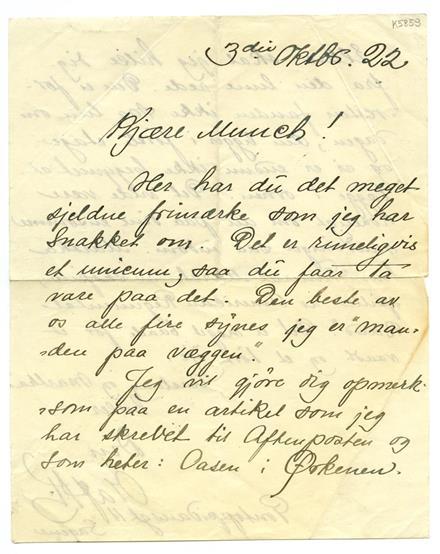 K5859
3die Oktbr. 22
Kjære Munch!
Her har du det meget
sjeldne frimærke som jeg har
snakket om. Det er rimeligvis
et unicum, saa du faar ta
vare paa det. Den beste av
os alle fire synes jeg er "man-
-den paa væggen."
Jeg vil gjøre dig opmerk-
-som paa en artikel som jeg
har skrevet til Aftenposten og
som heter: Oasen i Ørkenen.